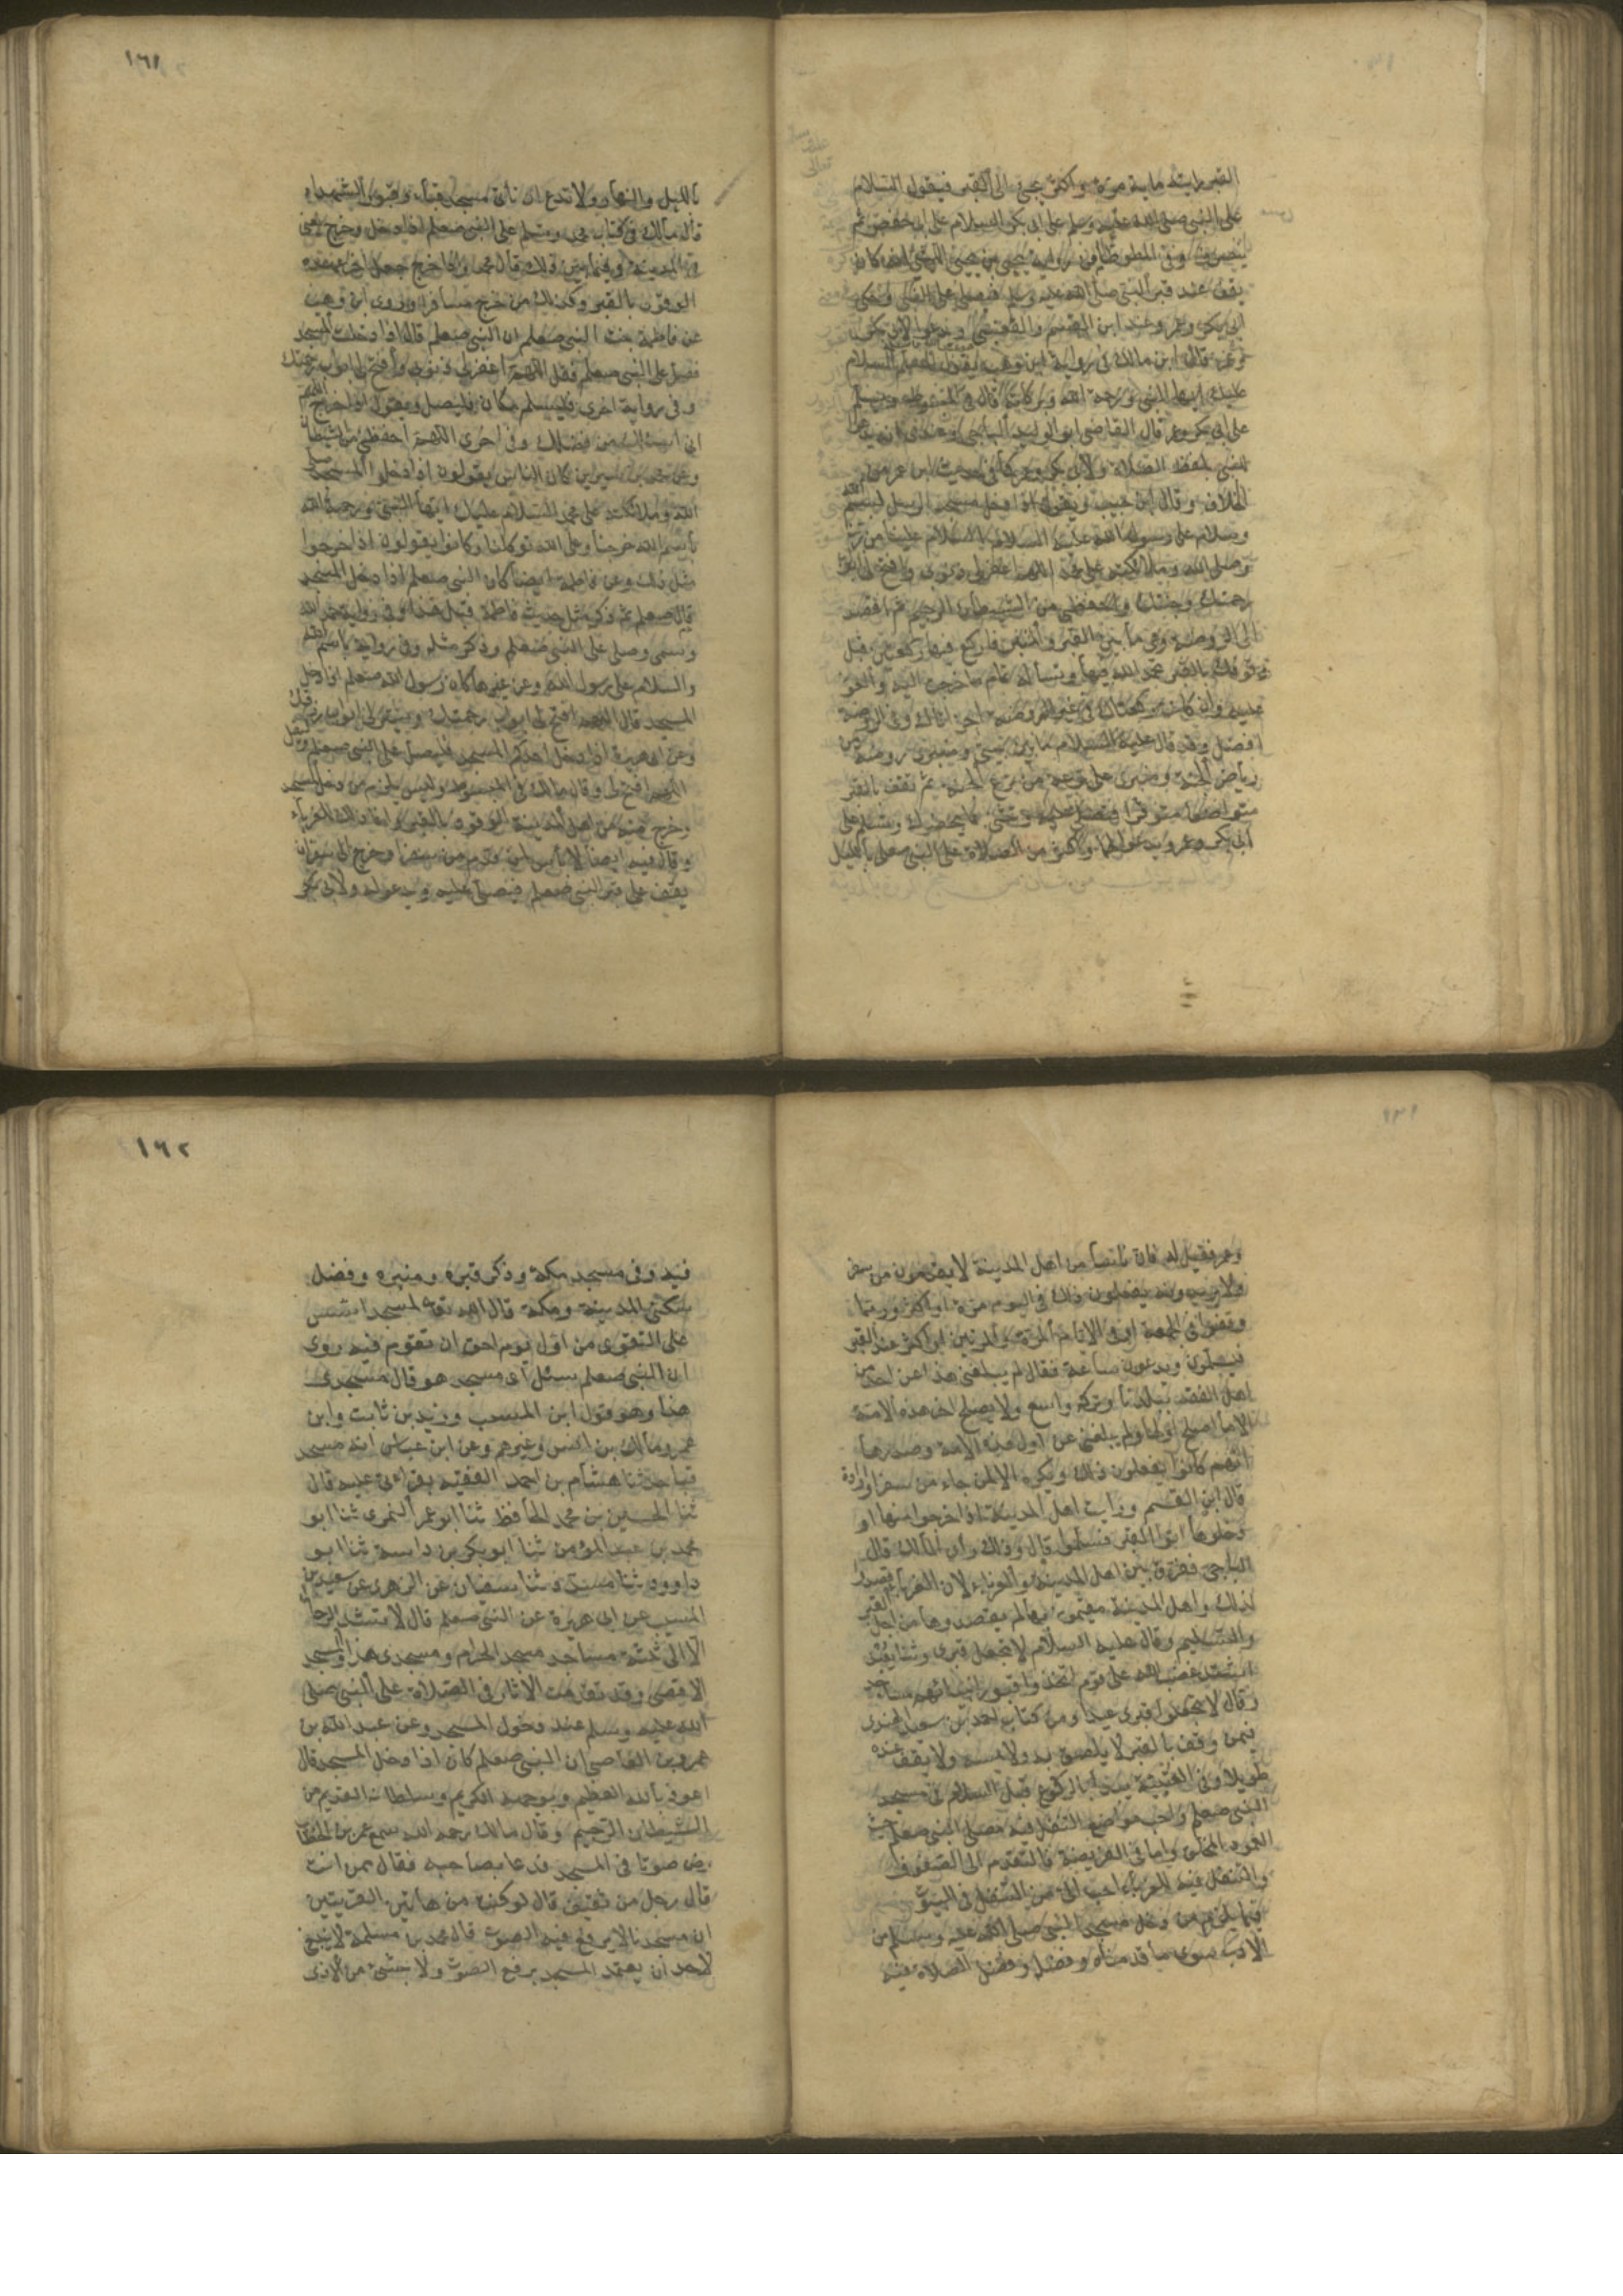 القبر رايته ماية مرة واكثر يجئ الى القبر فيقول السلام
على النبي صلى الله عليه وسلم السلام على ابى بكر السلام على ابى حفص ثم
ينصرف وفى الموطا من رواية يحيى بن يحيى الليثى انه كان
يقف عند قبر النبي صلى الله عليه وسلم فيصلى على النبي وعلى
ابى بكر وعمر وعند ابن القسم والقعنبى ويدعو لابى بكر
وعمر قال مالك فى رواية ابن وهب يقول المسلم السلام
عليك ايها النبي ورحمة الله وبركاته قال فى المبسوط ويسلم
على ابى بكر وعمر قال القاضى ابو الوليد الباجى وعندى انه يدعو
للنبي بلفظ الصلاة ولابى بكر وعمر كما فى حديث ابن عمر من
الخلاف وقال ابن حبيب ويقول اذا دخل مسجد الرسول بسم الله
وسلام على رسول الله عليه السلام السلام علينا من ربنا
وصلى الله وملائكته على محمد اللهم اغفر لى ذنوبى وافتح لى ابواب
رحمتك وجنتك واحفظنى من الشيطان الرجيم ثم اقصد
الى الروضة وهى ما بين القبر والمنبر فاركع فيها ركعتين قبل
وقوفك بالقبر تحمد الله فيها وتسأله تمام ما خرجت اليه والعون
عليه وان كانت ركعتاك فى غير الروضة اجزاتاك وفى الروضة
افضل وقد قال عليه السلام ما بين بيتى ومنبرى روضة من
رياض الجنة ومنبرى على ترعة من ترع الجنة ثم تقف بالقبر
متواضعا متوقرا فتصلى عليه وتثنى بما يحضرك وتسلم على
ابى بكر وعمر وتدعو لهما واكثر من الصلاة على النبي صعلم بالليل
١٦١
بالليل والنهار ولا تدع ان تأتى مسجد قباء وقبور الشهداء
قال مالك فى كتاب محمد ويسلم على النبي صعلم اذا دخل وخرج يعنى
فى المدينة وفيما بين ذلك قال محمد واذا خرج جعل اخر عهده
الوقوف بالقبر وكذلك من خرج مسافرا وروى ابن وهب
عن فاطمة بنت النبي صعلم ان النبي صعلم قال اذا دخلت المسجد
فصل على النبي صعلم فقل اللهم اغفر لى ذنوبى وافتح لى ابواب رحمتك
وفى رواية اخرى فليسلم مكان فليصل ويقول اذا خرج اللهم
انى اسئلك من فضلك وفى اخرى اللهم احفظنى من الشيطان
وعن محمد بن سيرين كان الناس يقولون اذا دخلوا المسجد صلى
الله وملائكته على محمد السلام عليك ايها النبي ورحمة الله
باسم الله خرجنا وعلى الله توكلنا وكانوا يقولون اذا خرجوا
مثل ذلك وعن فاطمة ايضا كان النبي صعلم اذا دخل المسجد
قال صعلم ثم ذكر مثل حديث فاطمة قبل هذا وفى رواية حمد الله
وسمى وصلى على النبي صعلم وذكر مثله وفى رواية باسم الله
والسلام على رسول الله وعن غيرها كان رسول الله صعلم اذا دخل
المسجد قال اللهم افتح لى ابواب رحمتك ويسر لى ابواب رزقك
وعن ابى هريرة اذا دخل احدكم المسجد فليصل على النبي صعلم وليقل
اللهم افتح لى وقال مالك فى المبسوط وليس يلزم من دخل المسجد
وخرج منه من اهل المدينة الوقوف بالقبر وانما ذلك للغرباء
وقال فيه ايضا لا بأس لمن قدم من سفر او خرج الى سفر ان
يقف على قبر النبي صعلم فيصلى عليه ويدعو له ولابى بكر
وعمر فقيل له فان ناسا من اهل المدينة لا يقدمون من سفر
ولا يريدونه يفعلون ذلك فى اليوم مرة او اكثر وربما
وقفوا فى الجمعة او فى الايام المرة والمرتين او اكثر عند القبر
فيسلمون ويدعون ساعة فقال لم يبلغنى هذا عن احد من
اهل الفقه ببلدنا وتركه واسع ولا يصلح اخر هذه الامة
الا ما اصلح اولها ولم يبلغنى عن اول هذه الامة وصدرها
انهم كانوا يفعلون ذلك ويكره الا لمن جاء من سفر او اراده
قال ابن القسم ورايت اهل المدينة اذا خرجوا منها او
دخلوها اتوا القبر فسلموا قال وذلك رأى لمالك قال
الباجى ففرق بين اهل المدينة والغرباء لان الغرباء قصدوا
لذلك واهل المدينة مقيمون بها لم يقصدوها من اجل القبر
والتسليم وقال عليه السلام لا تجعل قبرى وثنا يعبد
اشتد غضب الله على قوم اتخذوا قبور انبيائهم مساجد
وقال لا تجعلوا قبرى عيدا ومن كتاب احمد بن سعيد الهندى
فيمن وقف بالقبر لا يلصق به ولا يمسه ولا يقف عنده
طويلا وفى العتبية يبدأ بالركوع قبل السلام فى مسجد
النبي صعلم واحب مواضع التنفل فيه مصلى النبي صعلم حيث
العمود المخلق واما فى الفريضة فالتقدم الى الصفوف
والتنفل فيه للغرباء احب الى من التنفل فى البيوت
فيما يلزم من دخل مسجد النبي صلى الله عليه وسلم من
الادب سوى ما قدمناه وفضله وفضل الصلاة فيه
١٦٢
فيه وفى مسجد مكة وذكر قبره ومنبره وفضل
سكنى المدينة ومكة قال الله تعه لمسجد اسس
على التقوى من اول يوم احق ان تقوم فيه روى
ان النبي صعلم سئل اى مسجد هو قال مسجدى
هذا وهو قول ابن المسيب وزيد بن ثابت وابن
عمر ومالك بن انس وغيرهم وعن ابن عباس انه مسجد
قبا حدثنا هشام بن احمد الفقيه بقراءتى عليه قال
ثنا الحسين بن محمد الحافظ ثنا ابو عمر النمرى ثنا ابو
محمد بن عبد المؤمن ثنا ابو بكر بن داسة ثنا ابو
داوود ثنا مسدد ثنا سفيان عن الزهرى عن سعيد بن
المسيب عن ابى هريرة عن النبي صعلم قال لا تشد الرحال
الا الى ثلثة مساجد مسجد الحرام ومسجدى هذا والمسجد
الاقصى وقد تقدمت الاثار فى الصلاة على النبي صلى
الله عليه وسلم عند دخول المسجد وعن عبد الله بن
عمرو بن العاصى ان النبي صعلم كان اذا دخل المسجد قال
اعوذ بالله العظيم وبوجهه الكريم وسلطانه القديم من
الشيطان الرجيم وقال مالك رحمه الله سمع عمر بن الخطاب
رض صوتا فى المسجد فدعا بصاحبه فقال ممن انت
قال رجل من ثقيف قال لو كنت من هاتين القريتين
ان مسجدنا لا يرفع فيه الصوت قال محمد بن مسلمة لا ينبغى
لاحد ان يعتمد المسجد برفع الصوت ولا بشئ من الاذى